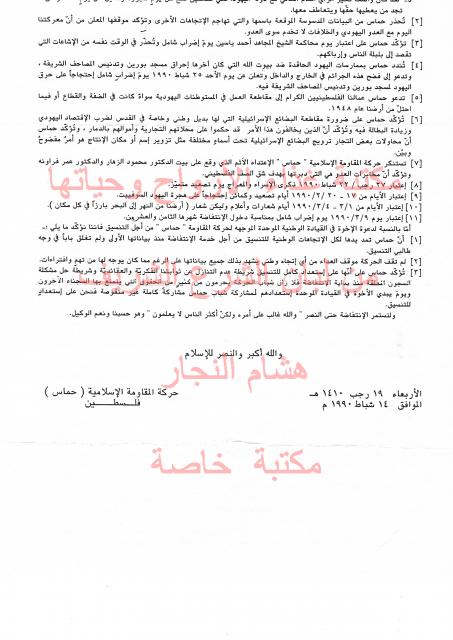 [٢] تُحذر حماس من البيانات المدسوسة الموقعة باسمها والتي تهاجم الإتجاهات الأخرى وتؤكد موقفها المعلن من أنّ معركتنا
اليوم مع العدو اليهودي والخلافات لا تخدم سوى العدو.
[٣] تؤكد حماس على إعتبار يوم محاكمة الشيخ المجاهد أحمد ياسين يومَ إضراب شامل وتُحذّر في الوقت نفسه من الإشاعات التي
تقصد إلى بلبلة الناس وإرباكهم.
[٤] تُندد حماس بممارسات اليهود الحاقدة ضد بيوت الله التي كان آخرها إحراق مسجد بورين وتدنيس المصاحف الشريفة ،
وتدعو إلى فضح هذه الجرائم في الخارج والداخل وتعلن عن يوم الأحد ٢٥ شباط ١٩٩٠ يومَ إضراب شامل إحتجاجاً على حرق
اليهود لمسجد بورين وتدنيس المصاحف الشريفة فيه.
[٥] تدعو حماس عمالنا الفلسطينيين الكرام إلى مقاطعة العمل في المستوطنات اليهودية سواءً كانت في الضفة والقطاع أو فيما
احتل من أرضنا عام ١٩٤٨.
[٦] تُؤكّد حماس على ضرورة مقاطعة البضائع الإسرائيلية التي لها بديل وطني وخاصة في القدس لضرب الإقتصاد اليهودي
وزيادة البطالة فيه وتُؤكّد أنّ الذين يخالفون هذا الأمر قد حكموا على محلاتهم التجارية وأموالهم بالدمار ، وتُؤكّد حماس
أنّ محاولات بعض التجار ترويج البضائع الإسرائيلية تحت أسماء مختلفة مثل تزوير إسم أو مكان الإنتاج هو أمرٌ مفضوحٌ
وبيّن.
[٧] تستنكر حركة المقاومة الإسلامية " حماس " الإعتداء الآثم الذي وقع على بيت الدكتور محمود الزهار والدكتور عمر فروانه
وتُؤكد أنّ مخابرات العدو هي التي دبرتها بهدف شق الصف الفلسطيني.
[٨] إعتبار ٢٧ رجب / ٢٢ شباط ١٩٩٠ ذكرى الإسراء والمعراج يوم تصعيد متميّز.
[٩] إعتبار الأيام من ١٧ - ٢٠ / ٢ / ١٩٩٠ أيام تصعيد وكمائن إحتجاجاً على هجرة اليهود السوفييت.
[١٠] إعتبار الأيام من ٣/١ - ١٩٩٠/٣/٤ أيام شعارات وأعلام وليكن شعار ( أرضنا من النهر إلى البحر بارزاً في كل مكان ).
[١١] إعتبار يوم ١٩٩٠/٣/٩ يوم إضراب شامل بمناسبة دخول الإنتفاضة شهرها الثامن والعشرين.
أمّا بالنسبة لدعوة الإخوة في القيادة الوطنية الموحدة الموجهة لحركة المقاومة " حماس " من أجل التنسيق فاننا نؤكد ما يلي :-
[١] أنّ حماس تمد يدها لكل الإتجاهات الوطنية للتنسيق من أجل خدمة الإنتفاضة منذ بياناتها الأول ولم تغلق باباً في وجه
طالبي التنسيق.
[٢] لم تقف الحركة موقف العداء من أي إتجاه وطني يشهد بذلك جميع بياناتها على الرغم مما كان يوجه لها من تهم وافتراءات.
[٣] تُؤكّد حماس على أنّها على إستعداد كامل للتنسيق شريطة عدم التنازل عن ثوابتنا الفكريّة والعقائديّة وشريطة حل مشكلة
السجون المعلقة منذ بداية الإنتفاضة فلا زال شباب الحركة يُحرمون من كثير من الحقوق التي يتمتع بها السجناء الآخرون
ويومَ يبدي الأخوة في القيادة الموحدة إستعدادهم لمشاركة شباب حماس مشاركة كاملة غير منقوصة فنحن على إستعدادٍ
للتنسيق.
ولتستمر الإنتفاضة حتى النصر "والله غالب على أمره ولكنّ أكثر الناس لا يعلمون" وهو حسبنا ونعم الوكيل.
والله أكبر والنصر للإسلام
هشام النجار
الأربعاء ١٩ رجب ١٤١٠ هـ
حركة المقاومة الإسلامية ( حماس )
الموافق ١٤ شباط ١٩٩٠ م
فلسطين
مكتبة خاصة